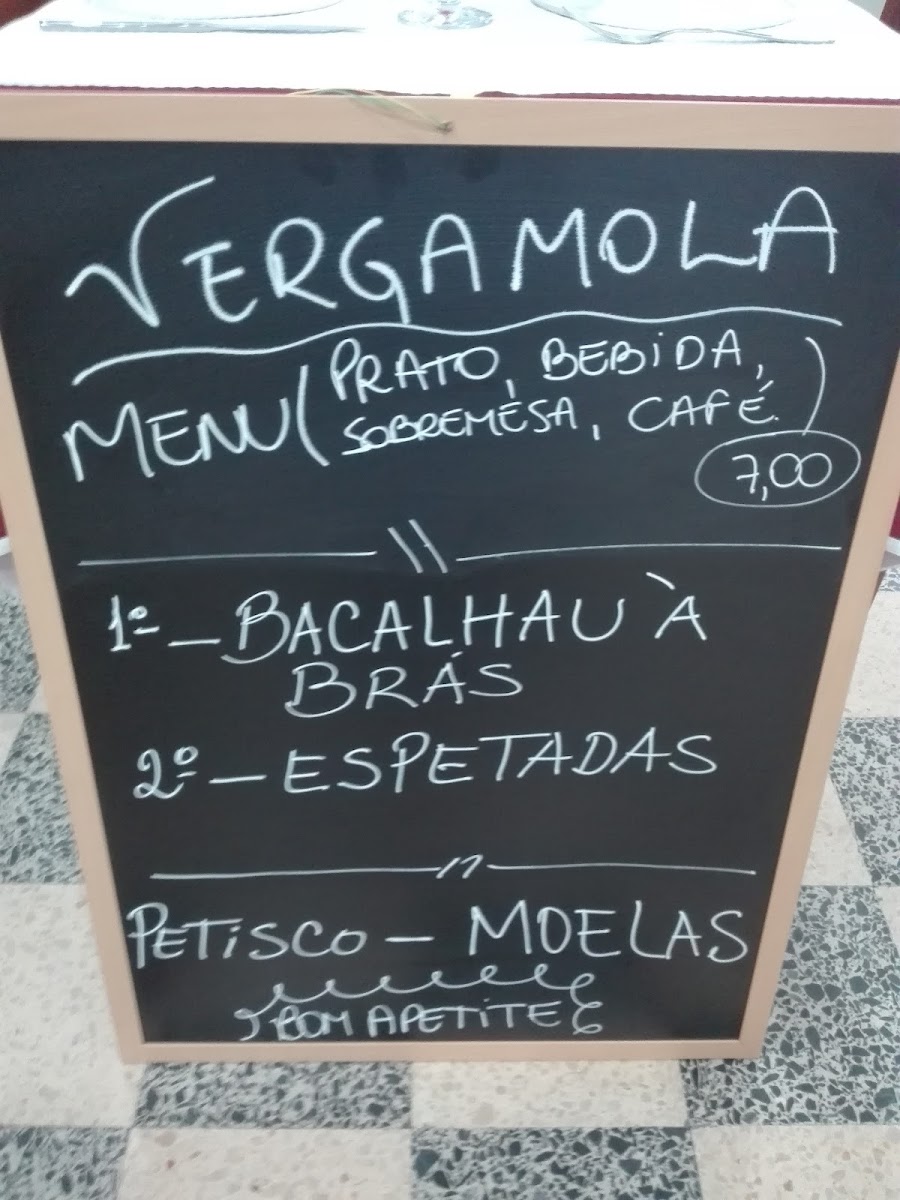 VERGAMOLA
MENU (PRATO, BEBIDA,
SOBREMESA, CAFÉ.)
7,00
1º - BACALHAU À
BRÁS
2º - ESPETADAS
PETISCO - MOELAS
BOM APETITE